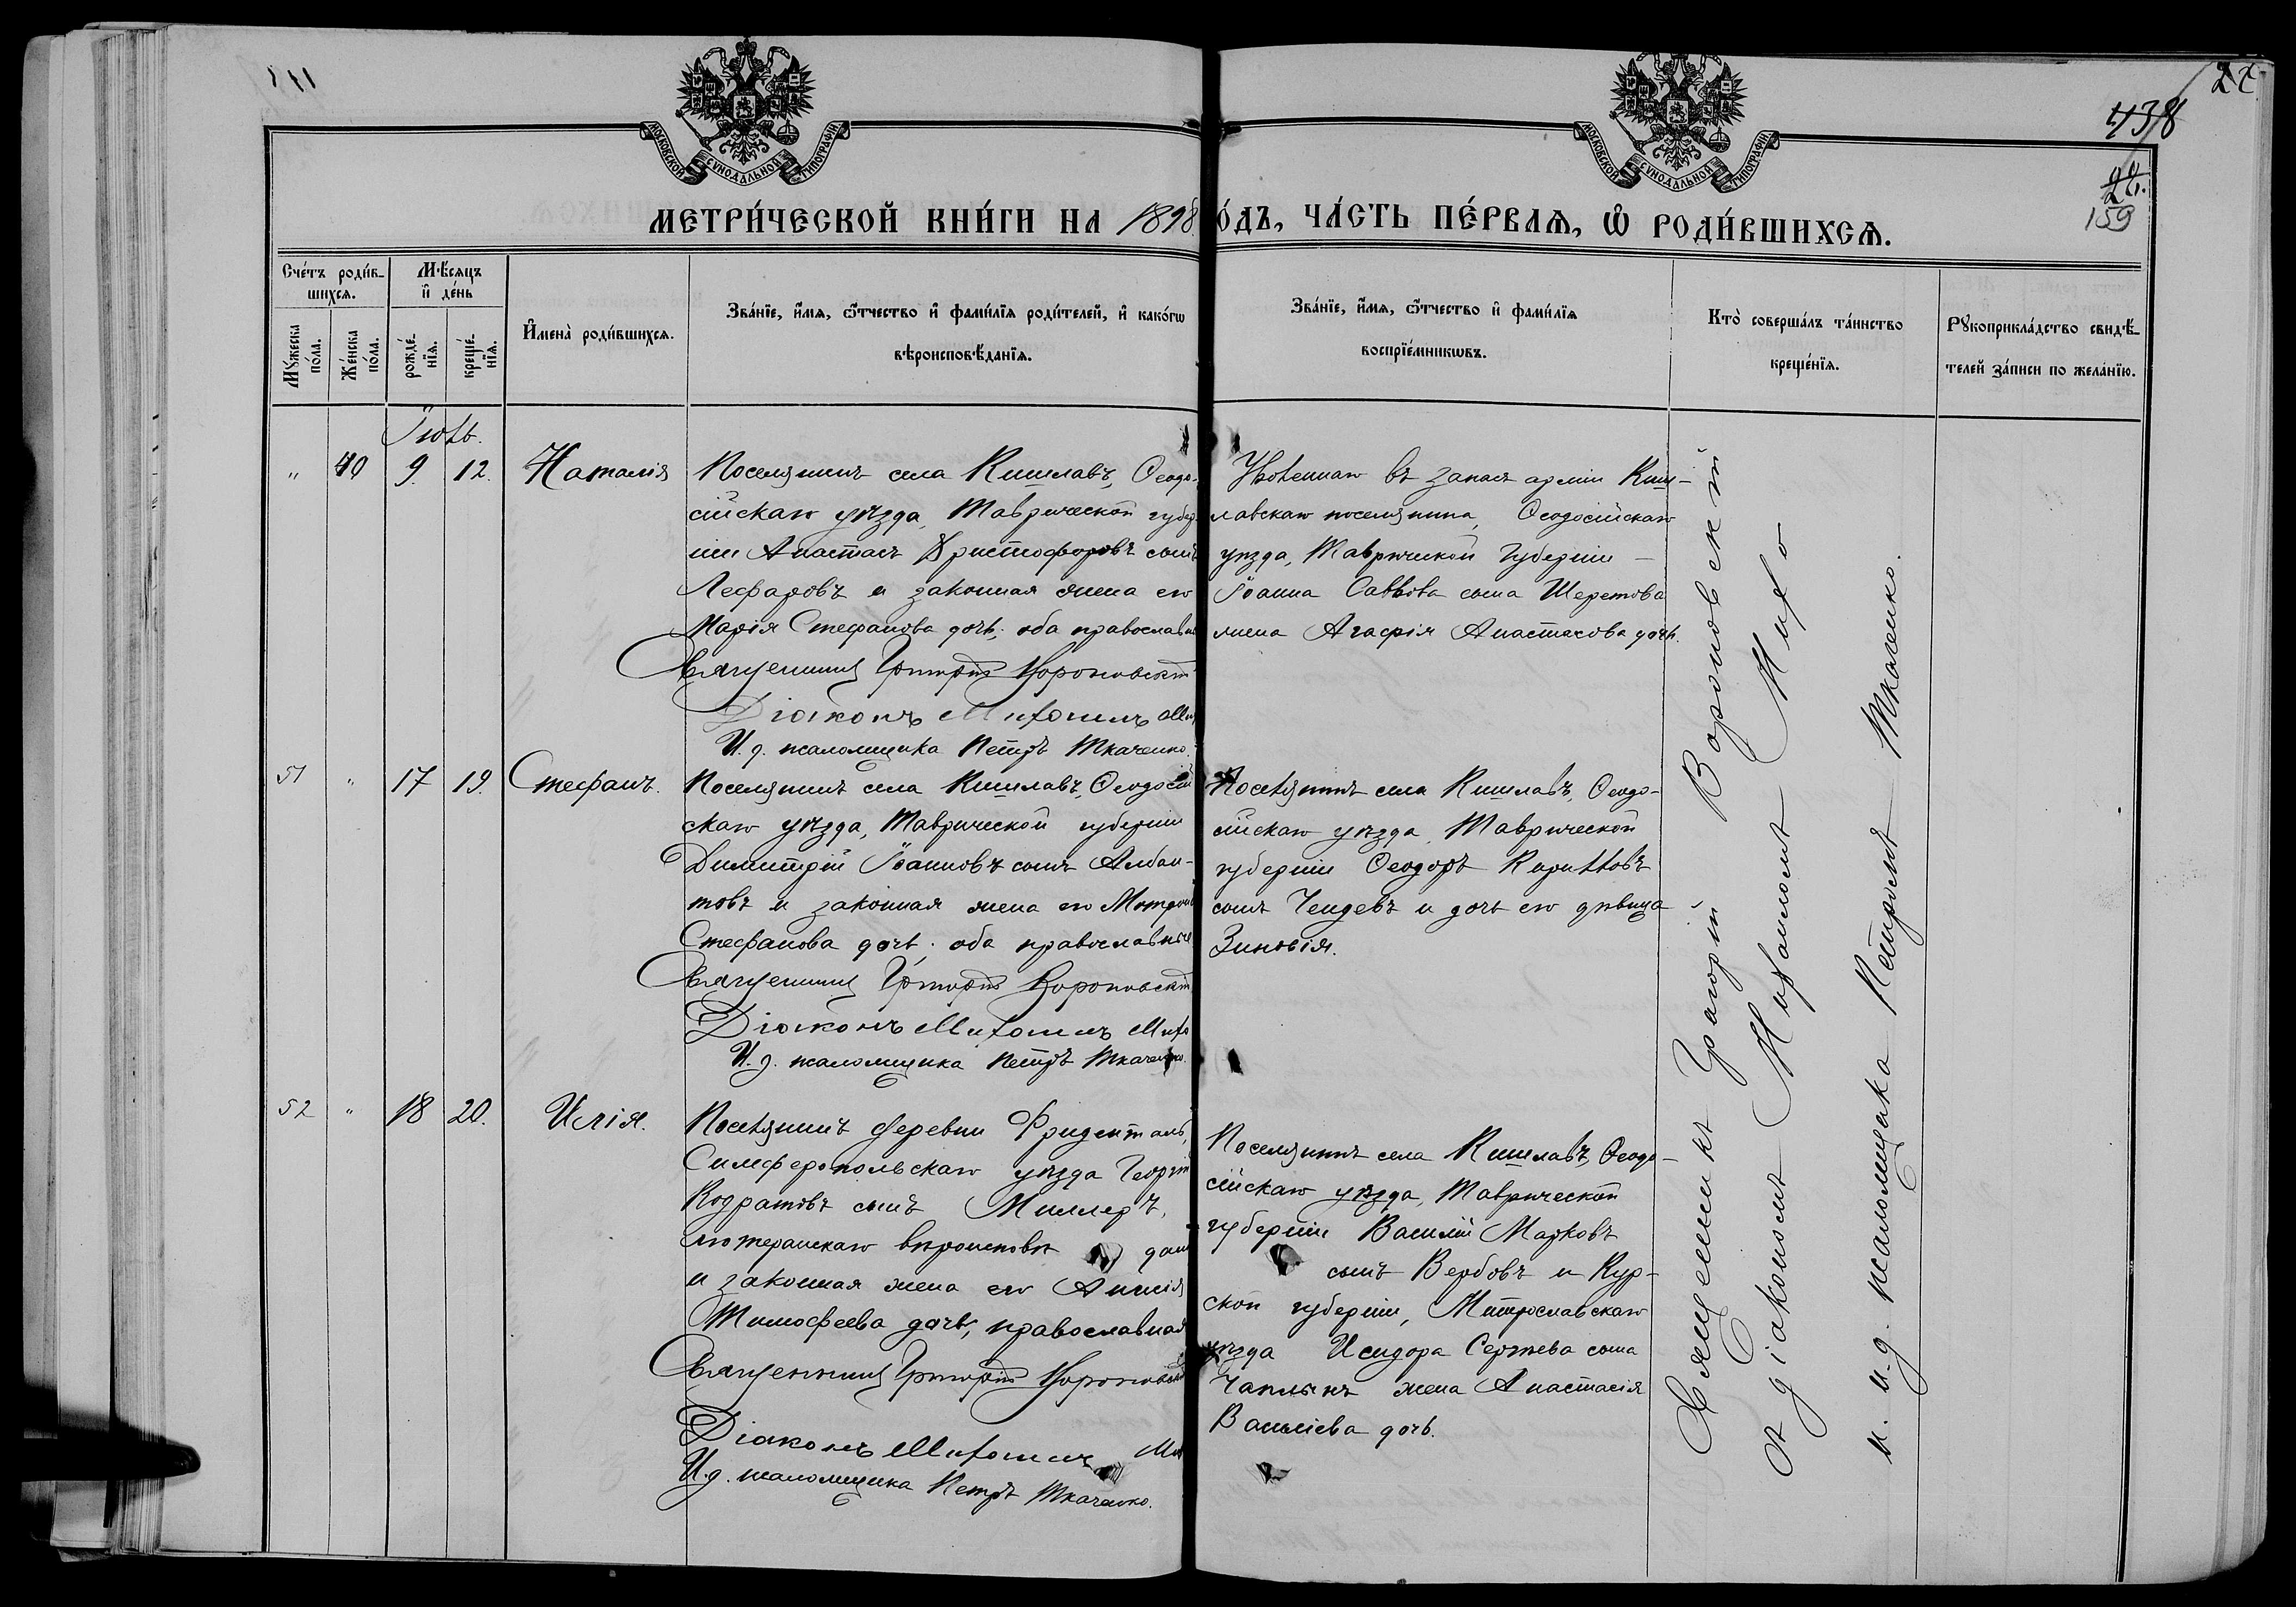 22
438
159
МОСКОВСКОЙ СѴНОДАЛЬНОЙ ТИПОГРАФІИ
МОСКОВСКОЙ СѴНОДАЛЬНОЙ ТИПОГРАФІИ
МЕТРИ́ЧЕСКОЙ КНИ́ГИ НА 1898 О́ДЪ, ЧА́СТЬ ПЕ́РВАѦ, Ѡ҆ РОДИ́ВШИХСѦ.
Сче́тъ роди́в-
шихсѧ.
Мꙋ́жеска по́ла.
Же́нска по́ла.
Мѣ́сѧцъ
и҆ де́нь
рожде́-
нїѧ.
креще́-
нїѧ.
И҆мена̀ роди́вшихсѧ.
Зва́нїе, и҆́мѧ, ѻ҆́тчество и҆ фами́лїѧ роди́телей, и҆ како́гѡ
вѣроисповѣ́данїѧ.
Зва́нїе, и҆́мѧ, ѻ҆́тчество и҆ фами́лїѧ
воспрїе́мникѡвъ.
Кто̀ соверша́лъ та́инство
креще́нїѧ.
Рꙋкоприкла́дство свидѣ́-
телей за́писи по жела́нїю.
Іюль.
" 40 9. 12. Наталія
Поселянинъ села Кишлавъ, Ѳеодо-
сійскаго уѣзда, Таврической губер-
ніи Анастасъ Христофоровъ сынъ
Лефаровъ и законная жена его
Марія Стефанова дочь; оба православн
Священникъ Григорій Вороновскій
Діаконъ Мифодій
И. д. псаломщика Петръ Ткаченко.
Уволеннаго въ запасъ арміи Киш-
лавскаго поселянина, Ѳеодосійскаго
уѣзда, Таврической губерніи –
Іоанна Саввова сына Шеретова
жена Агафія Анастасова дочь.
51 " 17 19. Стефанъ.
Поселянинъ села Кишлавъ, Ѳеодосій
скаго уѣзда, Таврической губерніи
Димитрій Іоанновъ сынъ Албан-
товъ и законная жена его
Стефанова дочь; оба православные
Священникъ Григорій Вороновскій
Діаконъ
И. д. псаломщика Петръ Ткаченко.
Поселянинъ села Кишлавъ, Ѳеодо-
сійскаго уѣзда, Таврической
губерніи Ѳеодоръ Кирилловъ
сынъ Чендевъ и дочь его дѣвица
Зиновія.
52 " 18 20. Илія.
Поселянинъ деревни Фриденталь,
Симферопольскаго уѣзда Георгій
Кодратовъ сынъ Миллеръ,
лютеранскаго вѣроисповѣ дан
и законная жена его
Тимофеева дочь, православная
Священникъ Григорій Вороновскій
Діаконъ
И. д. псаломщика Петръ Ткаченко.
Поселянинъ села Кишлавъ, Ѳеодо-
сійскаго уѣзда, Таврической
губерніи Василій Марковъ
сынъ Вербовъ и Кур-
ской губерніи,
уѣзда Исидора Сергѣева сына
жена Анастасія
Васильева дочь.
Священникъ Григорій Вороновскій
съ діакономъ
и и. д. псаломщика Петромъ Ткаченко.